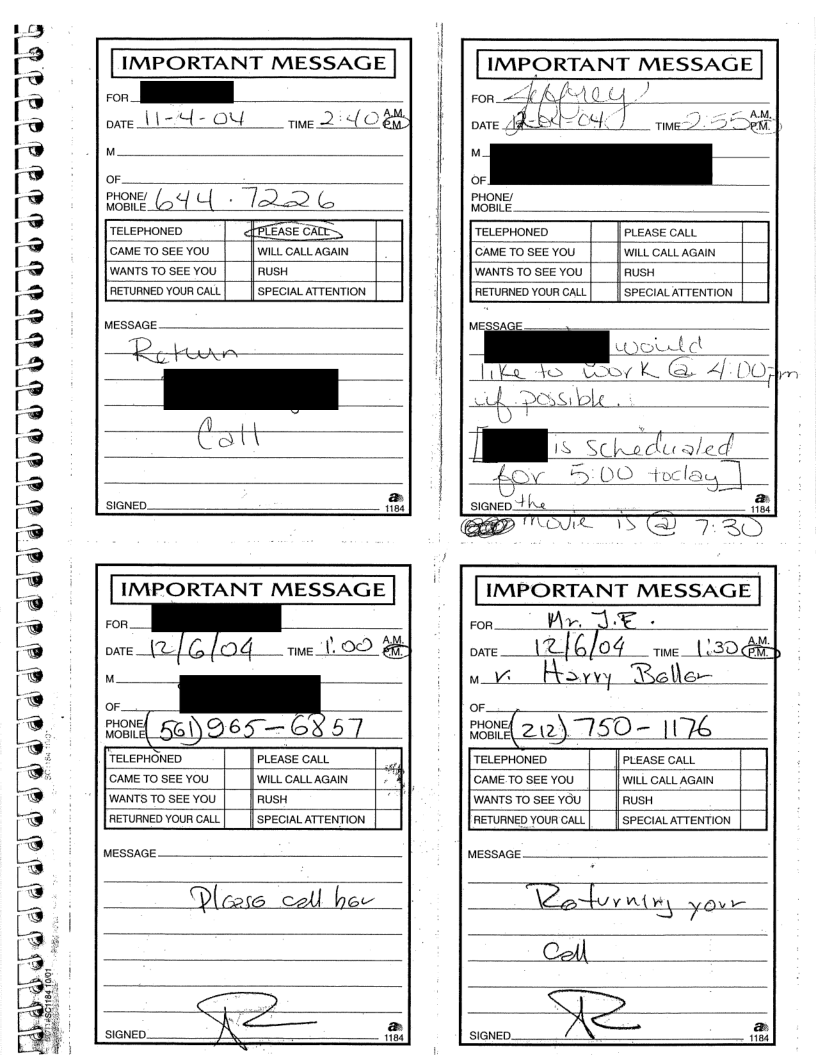 IMPORTANT MESSAGE
FOR
DATE 11-4-04 TIME 2:40 A.M. P.M.
M
OF
PHONE/ MOBILE 644.7226
TELEPHONED PLEASE CALL
CAME TO SEE YOU WILL CALL AGAIN
WANTS TO SEE YOU RUSH
RETURNED YOUR CALL SPECIAL ATTENTION
MESSAGE
Return
Call
SIGNED
1184
IMPORTANT MESSAGE
FOR Jeffrey
DATE 12-04-04 TIME 2:55 A.M. P.M.
M
OF
PHONE/ MOBILE
TELEPHONED PLEASE CALL
CAME TO SEE YOU WILL CALL AGAIN
WANTS TO SEE YOU RUSH
RETURNED YOUR CALL SPECIAL ATTENTION
MESSAGE
would
like to work @ 4:00pm
if possible.
[ is scheduled
for 5:00 today]
SIGNED the
1184
movie is @ 7:30
IMPORTANT MESSAGE
FOR
DATE 12/6/04 TIME 1:00 A.M. P.M.
M
OF
PHONE/ MOBILE (561) 965-6857
TELEPHONED PLEASE CALL
CAME TO SEE YOU WILL CALL AGAIN
WANTS TO SEE YOU RUSH
RETURNED YOUR CALL SPECIAL ATTENTION
MESSAGE
Please call her
SIGNED
1184
IMPORTANT MESSAGE
FOR Mr. J.E.
DATE 12/6/04 TIME 1:30 A.M. P.M.
M r. Harry Beller
OF
PHONE/ MOBILE (212) 750-1176
TELEPHONED PLEASE CALL
CAME TO SEE YOU WILL CALL AGAIN
WANTS TO SEE YOU RUSH
RETURNED YOUR CALL SPECIAL ATTENTION
MESSAGE
Returning your
Call
SIGNED
1184
SC1184 10/01